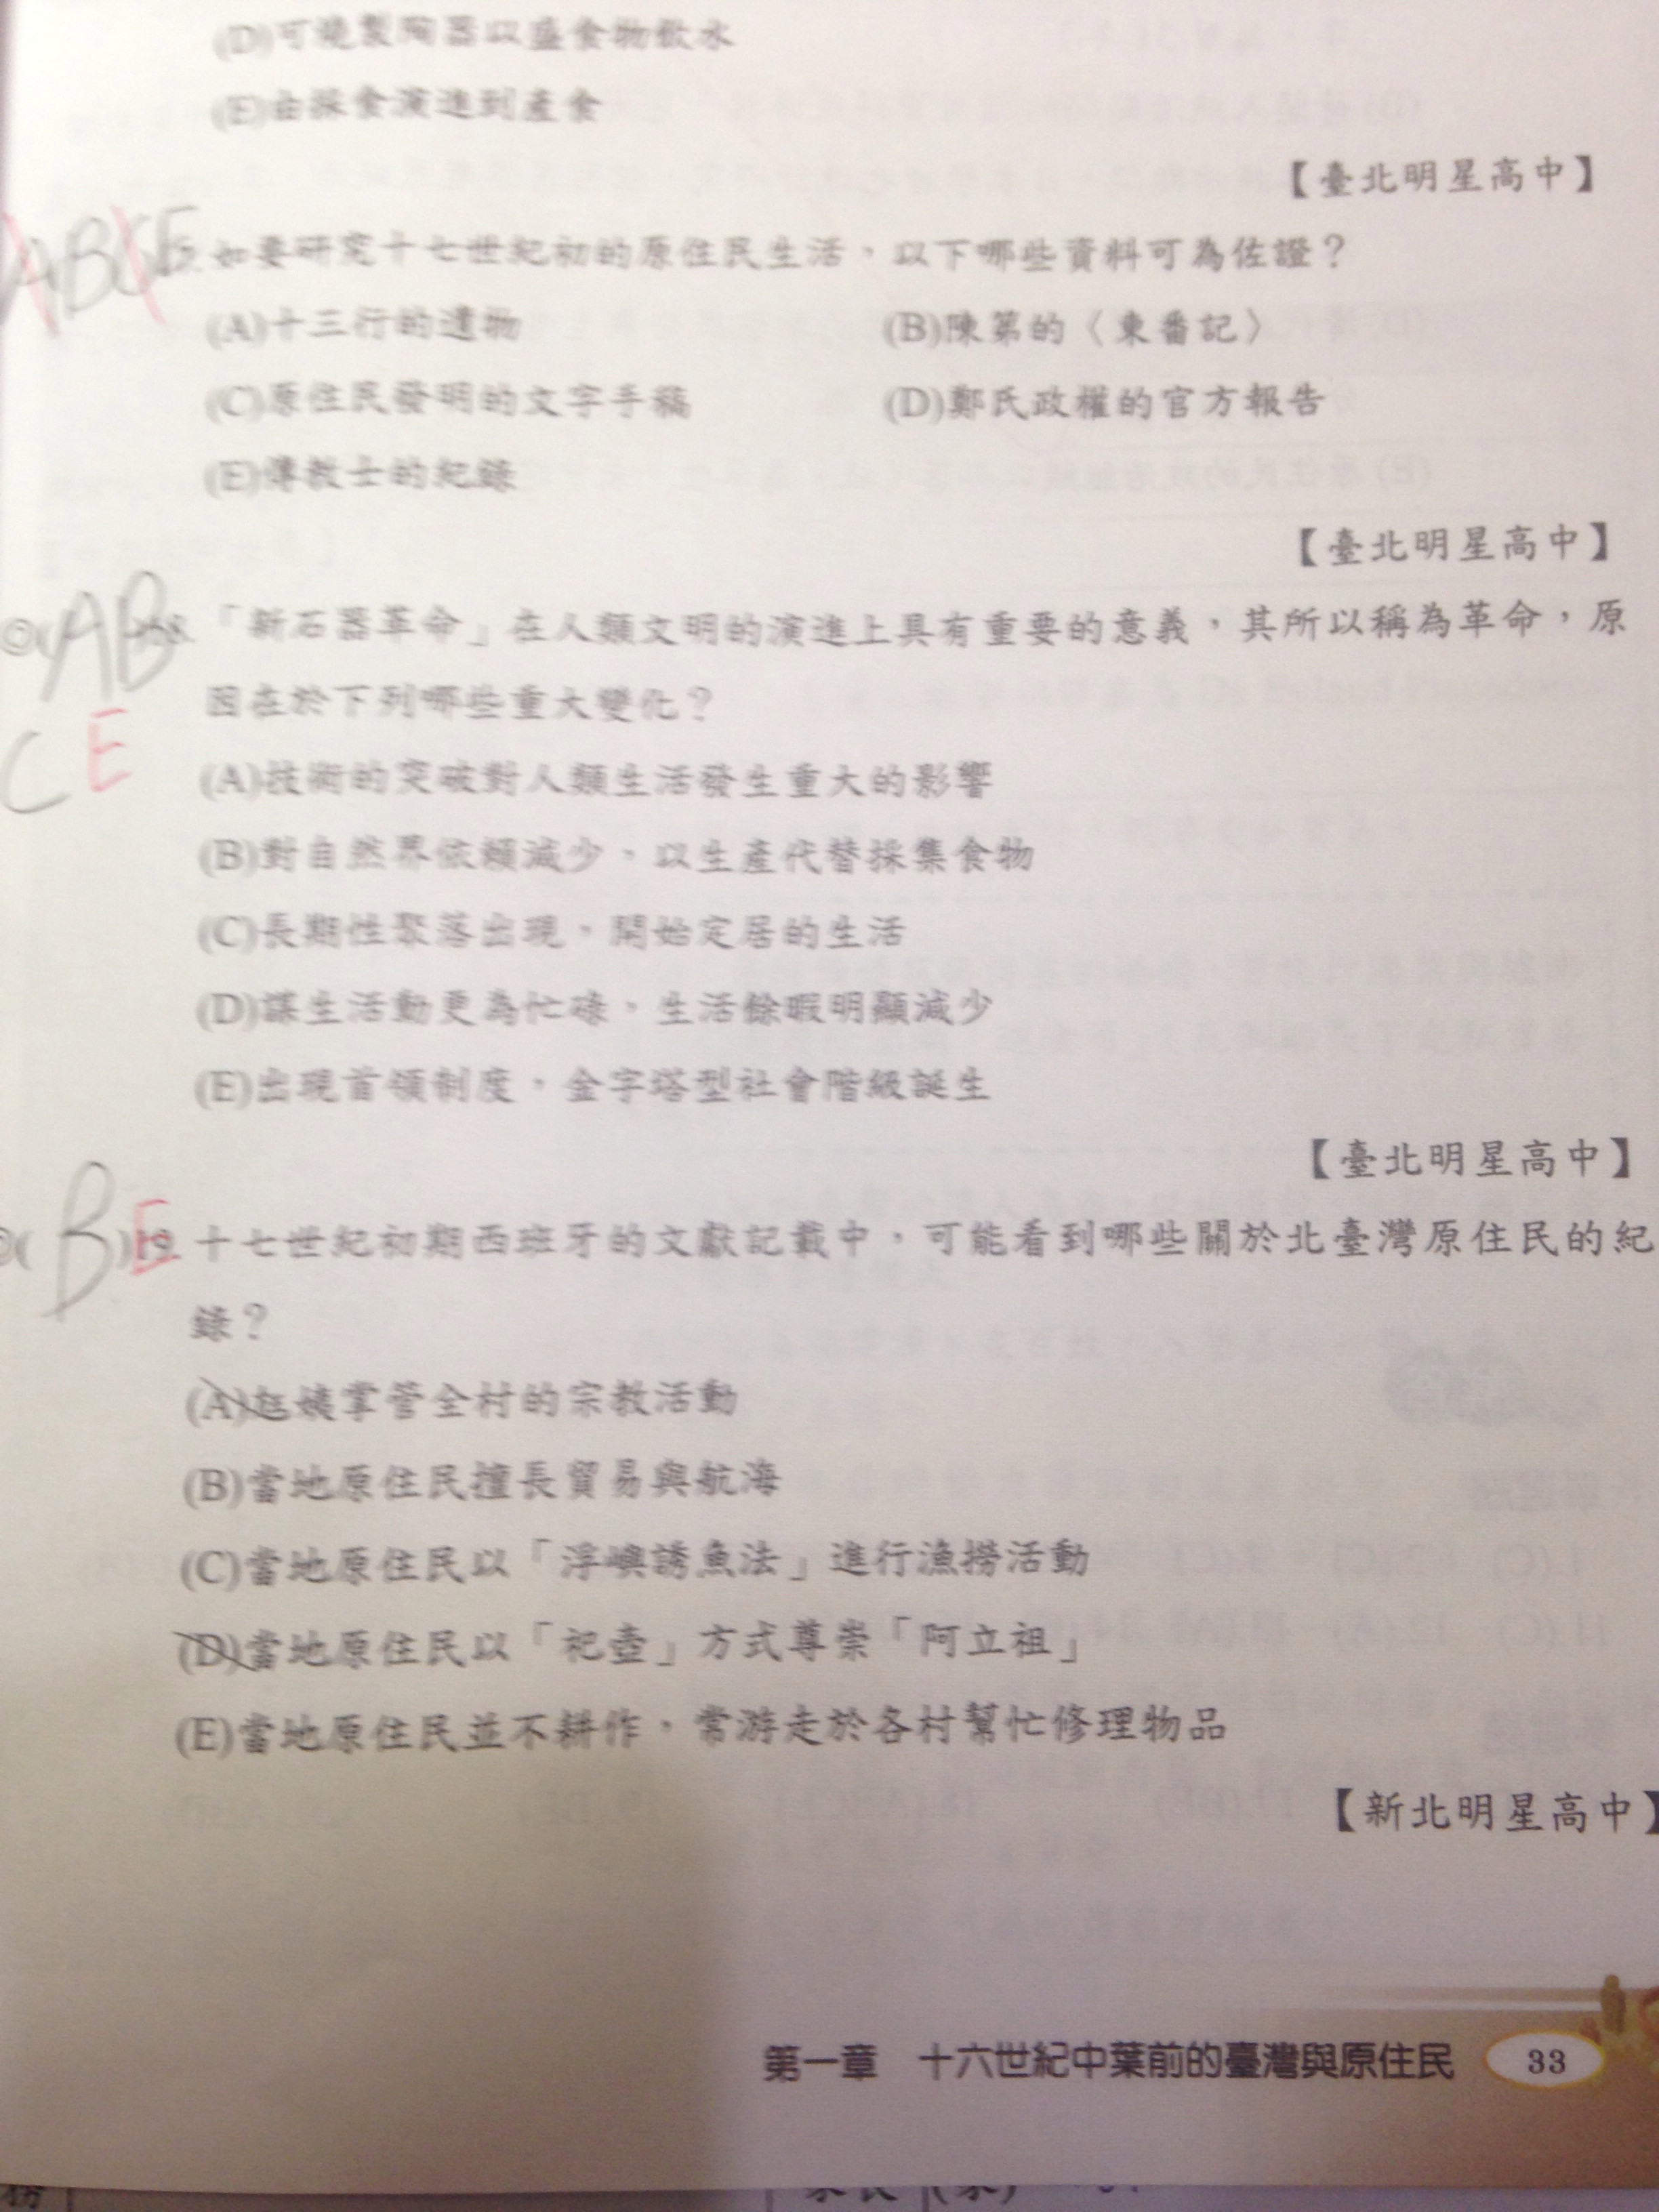 (D)可燒製陶器以盛食物飲水
(E)由採食演進到產食
【臺北明星高中】
ABCE 如要研究十七世紀初的原住民生活，以下哪些資料可為佐證？
(A)十三行的遺物 (B)陳第的〈東番記〉
(C)原住民發明的文字手稿 (D)鄭氏政權的官方報告
(E)傳教士的紀錄
【臺北明星高中】
◎( AB 8.「新石器革命」在人類文明的演進上具有重要的意義，其所以稱為革命，原
CE 因在於下列哪些重大變化？
(A)技術的突破對人類生活發生重大的影響
(B)對自然界依賴減少，以生產代替採集食物
(C)長期性聚落出現，開始定居的生活
(D)謀生活動更為忙碌，生活餘暇明顯減少
(E)出現首領制度，金字塔型社會階級誕生
【臺北明星高中】
◎( B )E 十七世紀初期西班牙的文獻記載中，可能看到哪些關於北臺灣原住民的紀
錄？
(A)尪姨掌管全村的宗教活動
(B)當地原住民擅長貿易與航海
(C)當地原住民以「浮嶼誘魚法」進行漁撈活動
(D)當地原住民以「祀壺」方式尊崇「阿立祖」
(E)當地原住民並不耕作，常游走於各村幫忙修理物品
【新北明星高中】
第一章 十六世紀中葉前的臺灣與原住民 33